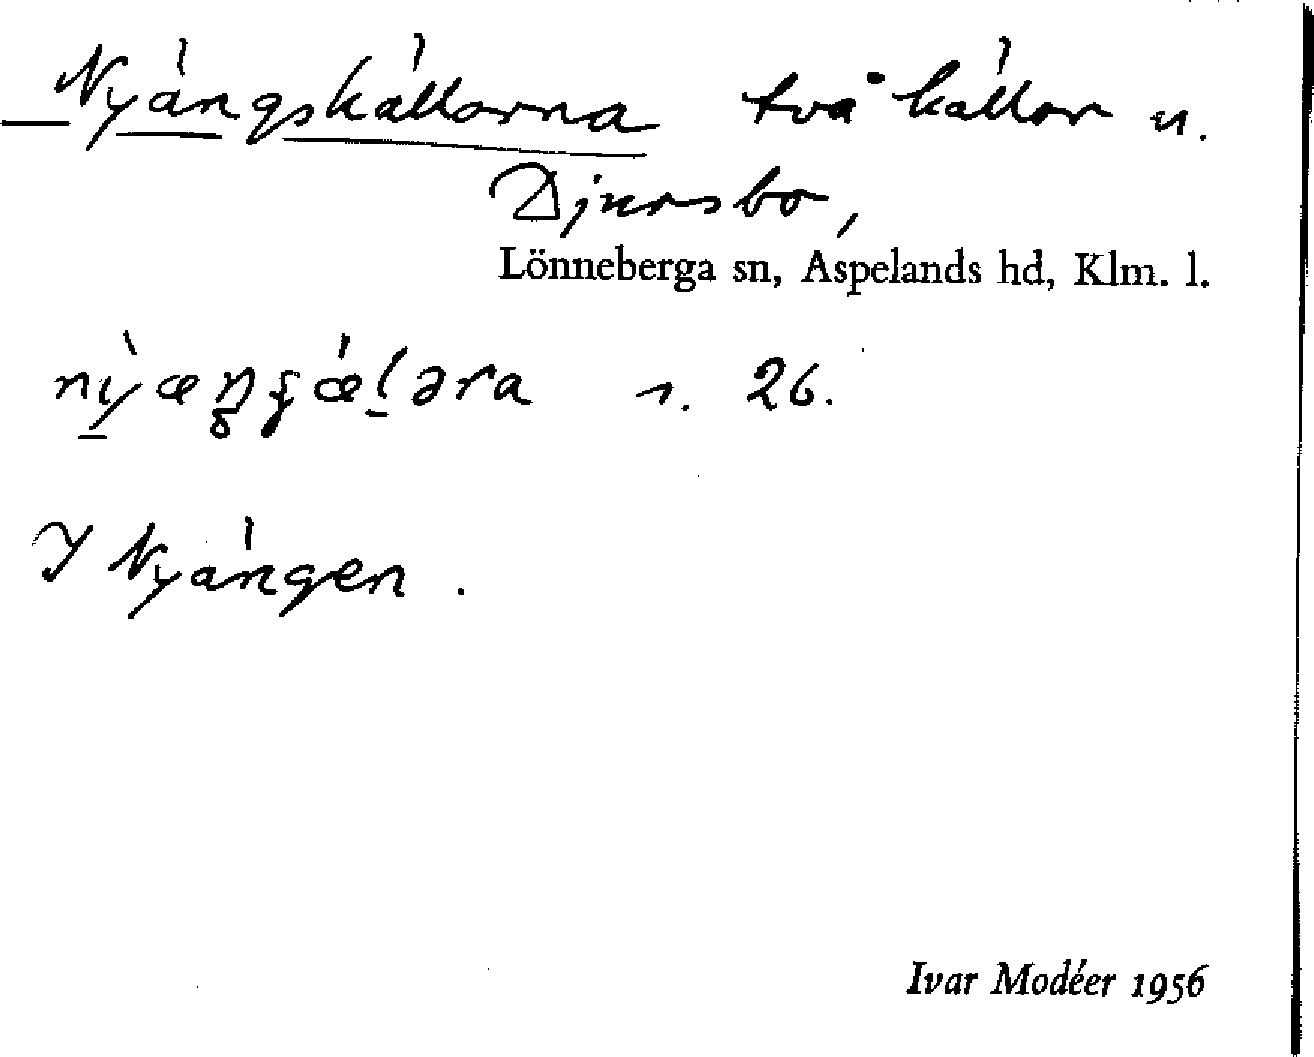 Nyängskällorna två källor u.
Djursbo,
Lönneberga sn, Aspelands hd, Klm. l.
s. 26.
I Nyängen.
Ivar Modéer 1956